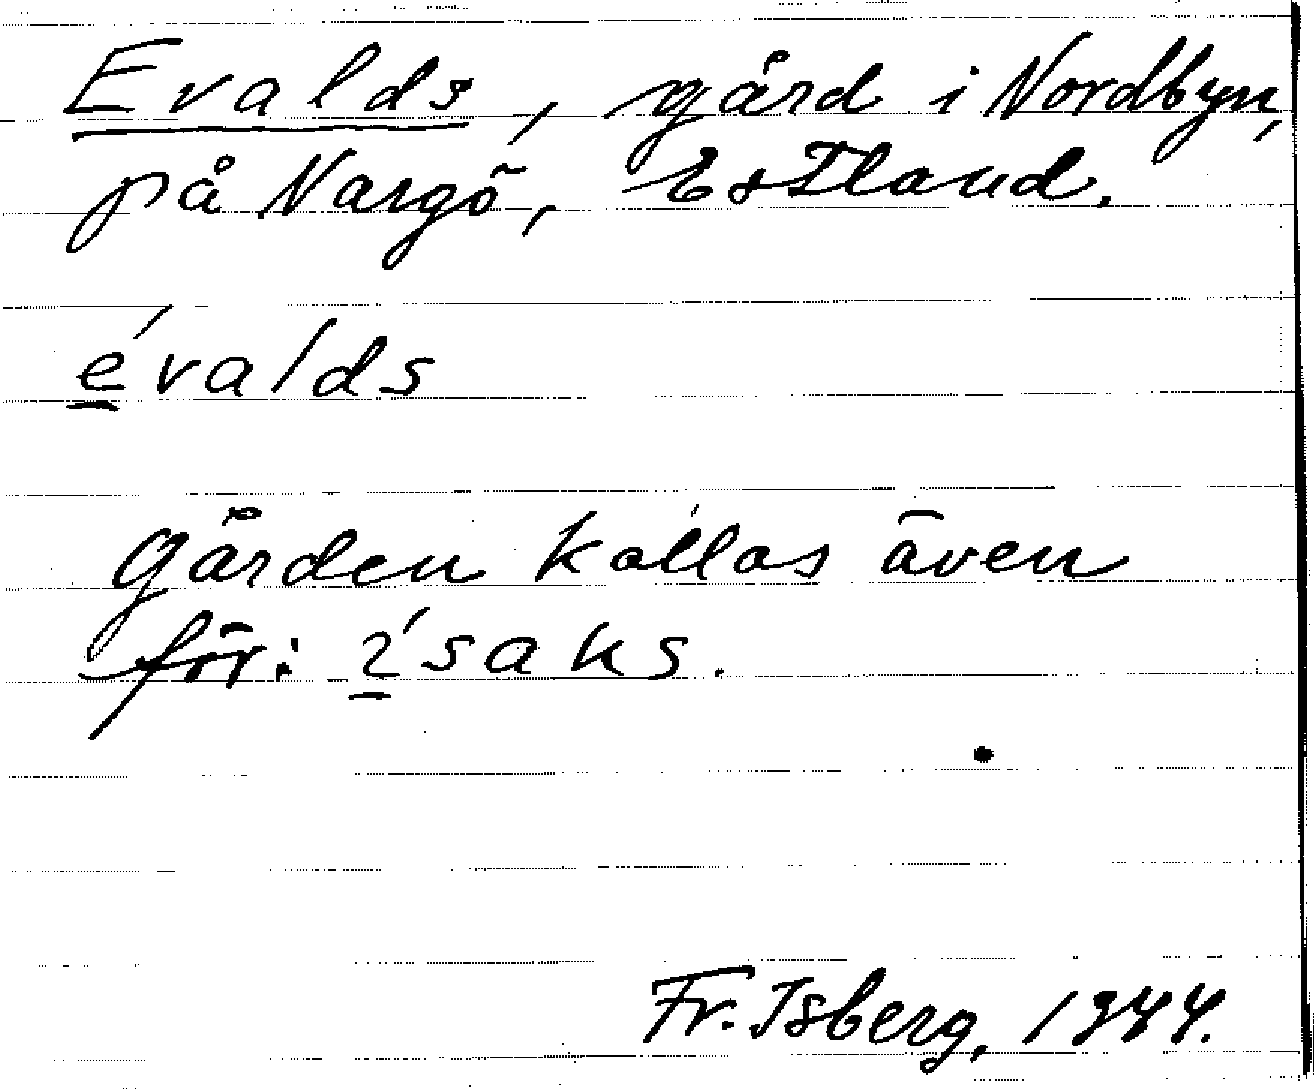 Evalds, gård i Nordbyn,
på Nargö, Estland.
e̲´valds
Gården kallas även
för: ı̲´saks.
Fr. Isberg, 1944.